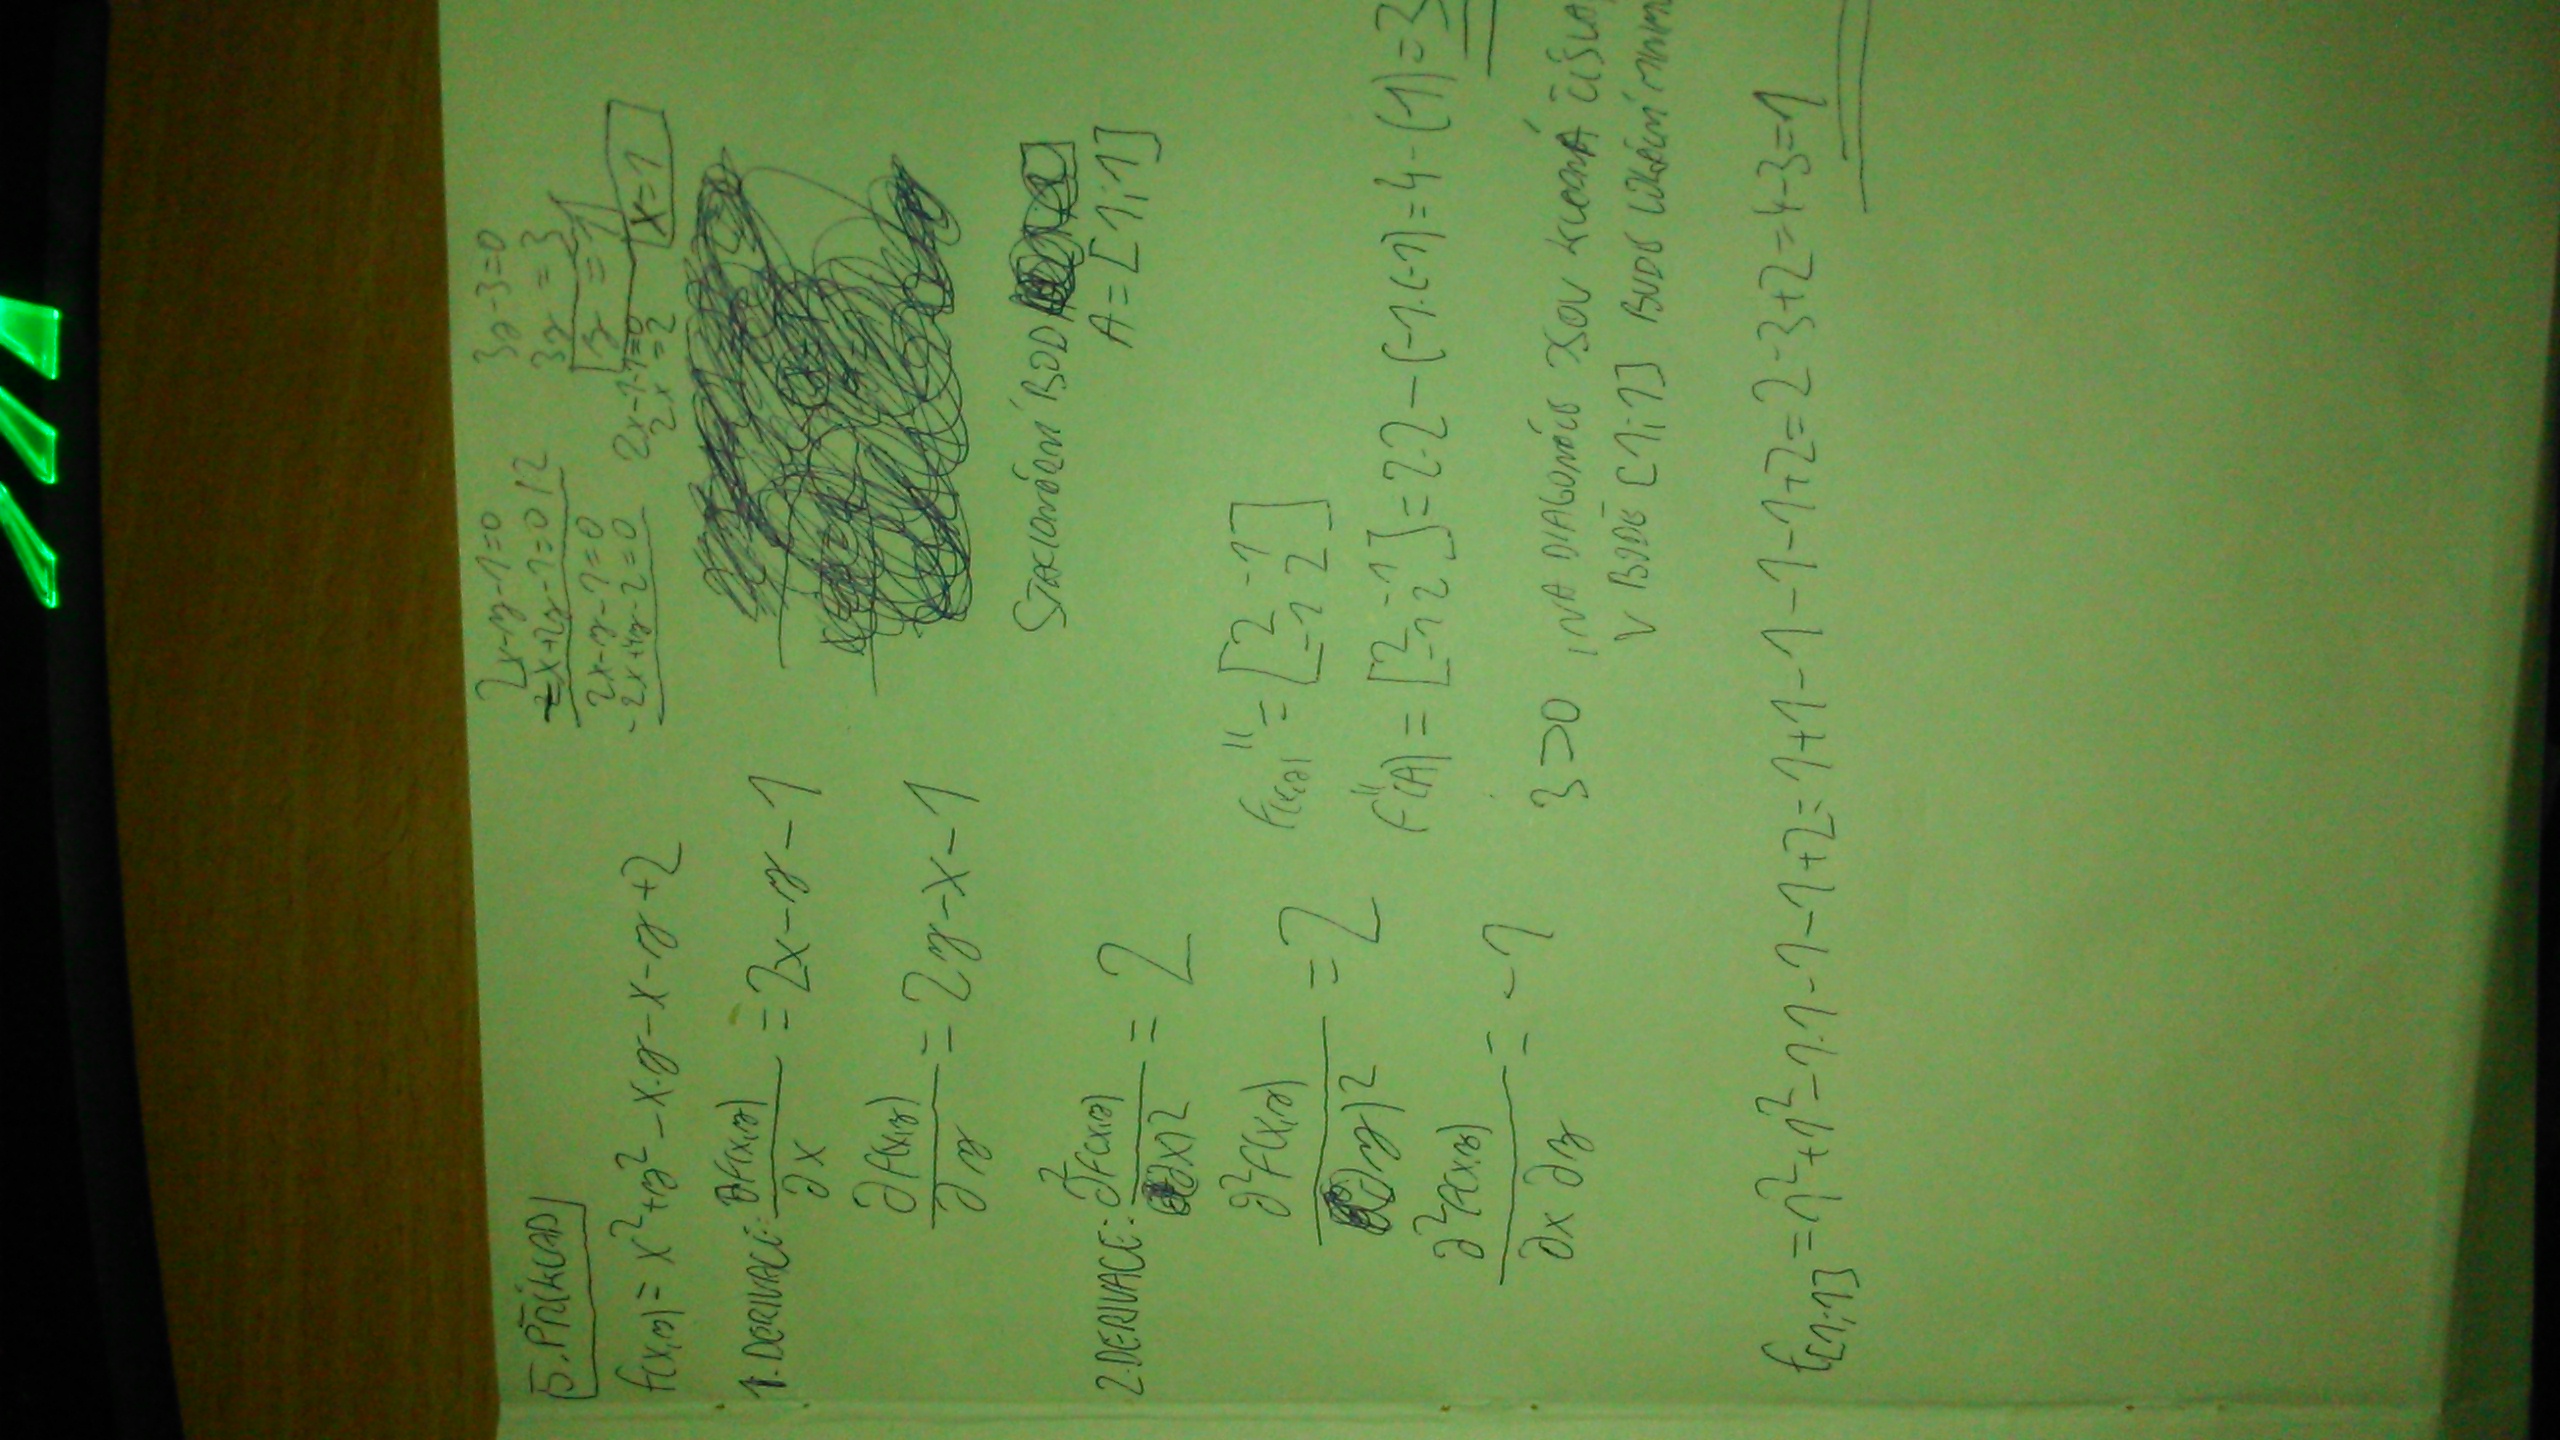 5. PŘÍKLAD
f(x,y) = x² + y² - x·y - x - y + 2
1. DERIVACE: ∂f(x,y)/∂x = 2x - y - 1
∂f(x,y)/∂y = 2y - x - 1
2. DERIVACE: ∂²f(x,y)/(∂x)2 = 2
∂²f(x,y)/(∂y)2 = 2
∂²f(x,y)/∂x ∂y = -1
2x - y - 1 = 0
-x + 2y - 1 = 0 /2
2x - y - 1 = 0
-2x + 4y - 2 = 0
3y - 3 = 0
3y = 3
y = 1
2x - 1 - 1 = 0
2x = 2
x = 1
STACIONÁRNÍ BOD
A = [1;1]
f(x,y)'' = [2 -1
-1 2]
f''(A) = [2 -1
-1 2] = 2·2 - (-1·(-1) = 4 - (1) = 3
3 > 0 , NA DIAGONÁLE JSOU KLADNÁ ČÍSLA,
V BODĚ [1;1] BUDE LOKÁLNÍ MINIM
f[1;1] = 1² + 1² - 1·1 - 1 - 1 + 2 = 1 + 1 - 1 - 1 - 1 + 2 = 2 - 3 + 2 = 4 - 3 = 1